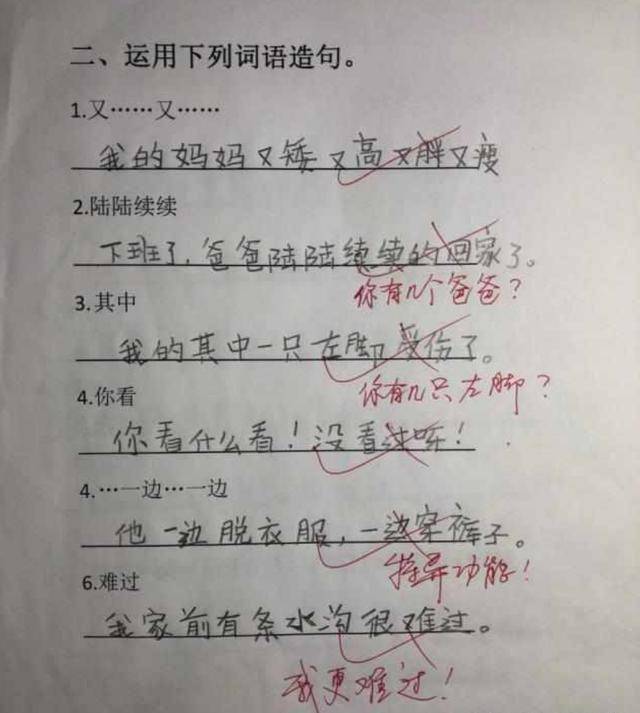 二、运用下列词语造句。
1.又……又……
我的妈妈又矮又高又胖又瘦
2.陆陆续续
下班了,爸爸陆陆续续的回家了。
你有几个爸爸?
3.其中
我的其中一只左脚受伤了。
你有几只左脚?
4.你看
你看什么看!没看过啊!
4.…一边…一边
他一边脱衣服,一边穿裤子。
特异功能!
6.难过
我家前有条水沟很难过。
我更难过!